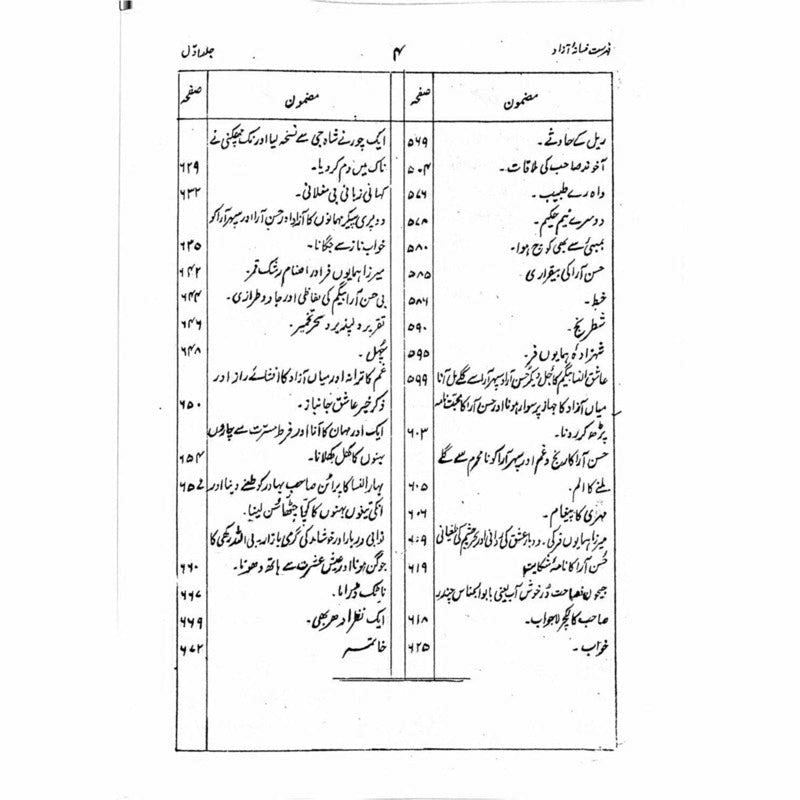 فہرست فسانۂ آزاد
۴
جلد اوّل
مضمون
صفحہ
ریل کے حادثے۔ ۵۶۹
آخوند صاحب کی ملاقات۔ ۵۰۴
واہ رے طبیب۔ ۵۷۶
دوسرے نیم حکیم۔ ۵۷۸
بمبئی سے بھی کوچ ہوا۔ ۵۸۰
حسن آرا کی بیقراری ۵۸۵
خط۔ ۵۸۶
شطرنج۔ ۵۹۰
شہزادہ ہمایوں فر۔ ۵۹۵
عاشق النسا بیگم کا جُل دیکر حسن آرا و سپہر آرا سے گلے مل آنا ۵۹۹
میاں آزاد کا جہاز پر سوار ہونا اور حسن آرا کا محبت نامہ
پڑھ کر رونا۔ ۶۰۳
حسن آرا کا رنج و غم اور سپہر آرا کو نامحرم سے گلے
ملنے کا الم۔ ۶۰۵
مہری کا پیغام۔ ۶۰۶
میرزا ہمایوں فر کی دوبار عشق کی اور چشم کی طغیانی ۶۰۹
حُسن آرا کا نامۂ شکایت ۶۱۹
جیحون فصاحت دُر خوش آب یعنی بابو چندر
صاحب کا لکچر لاجواب۔ ۶۱۸
خواب۔ ۶۲۵
مضمون
صفحہ
ایک چور نے شاہ جی سے نسخہ لیا اور نک چھکنی نے
ناک میں دم کر دیا۔ ۶۲۹
کہانی زبانی بی مغلانی۔ ۶۳۲
دو پری پیکر مہمانوں کا آزاد اور حسن آرا اور سپہر آرا کو
خواب ناز سے جگانا۔ ۶۳۵
میرزا ہمایوں فر اور، صنام رشک قمر۔ ۶۴۲
بی حسن آرا بیگم کی لفاظی اور جادو طرازی۔ ۶۴۴
تقریر دلپذیر و سحر تخمیر۔ ۶۴۶
چُہل۔ ۶۴۸
غم کا ترانہ اور میاں آزاد کا افشائے راز اور
ذکر خیر عاشق جانباز۔ ۶۵۰
ایک اور مہمان کا آنا اور فرط مسرت سے چاروں
بہنوں کا گھل کھلانا۔ ۶۵۴
بہار النسا کا پرانے صاحب بہادر کو طعنے دینا اور ۶۵۷
انکی تینوں بہنوں کا کچا چٹھا سُن لینا۔
نوابی دربار اور خوشامد کی گرمی بازار۔ بی اللہ رکھی کا
جوگن ہونا اور عیش عشرت سے ہاتھ دھونا۔ ۶۶۰
ناٹک ڈراما۔ ۶۶۷
ایک نظر ادھر بھی۔ ۶۶۹
خاتمہ ۶۷۲